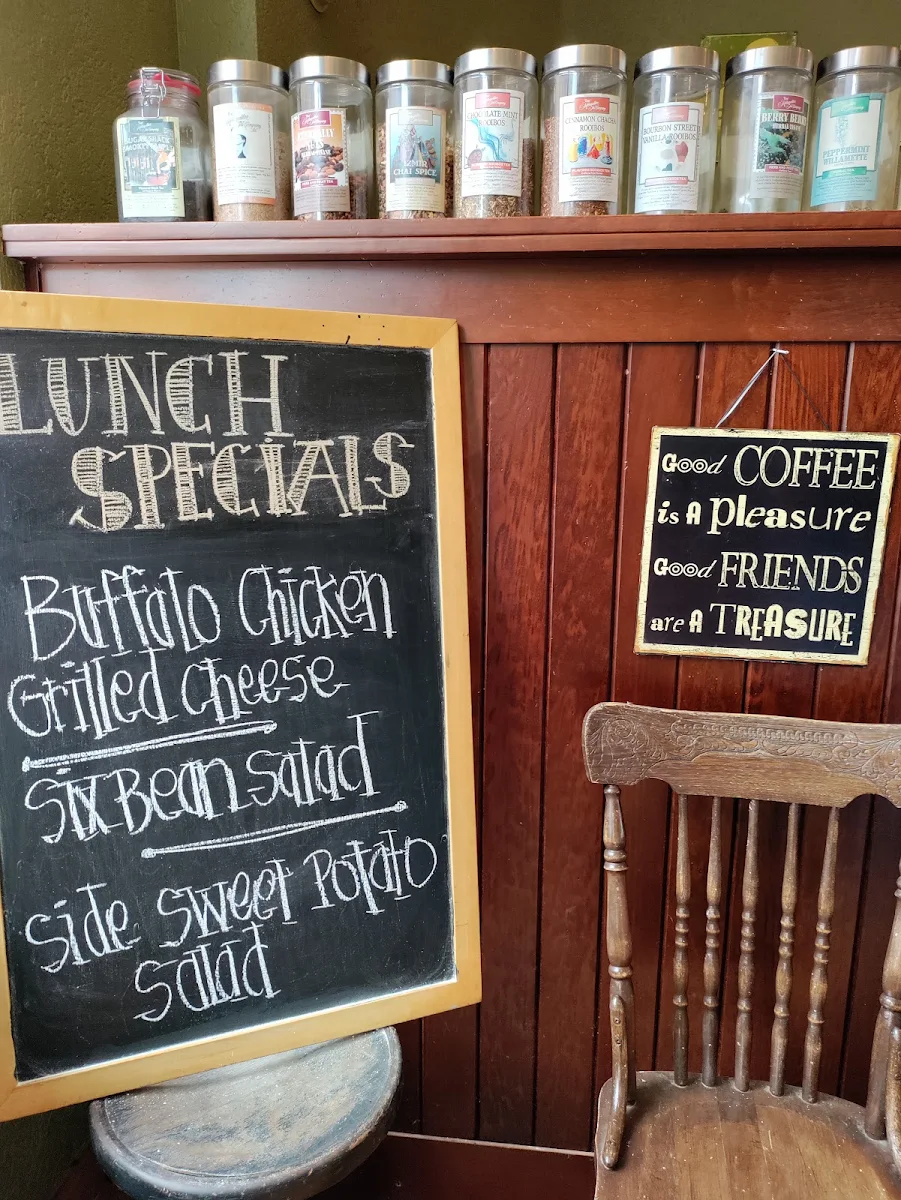 IZMIR
CHAI SPICE
CHOCOLATE MINT
ROOIBOS
CINNAMON
ROOIBOS
BOURBON STREET
VANILLA ROOIBOS
BERRY
PEPPERMINT
WILLAMETTE
LUNCH
SPECIALS
Buffalo Chicken
Grilled Cheese
Six Bean Salad
Side Sweet Potato
Salad
Good COFFEE
is A pleasure
Good FRIENDS
are A TREASURE